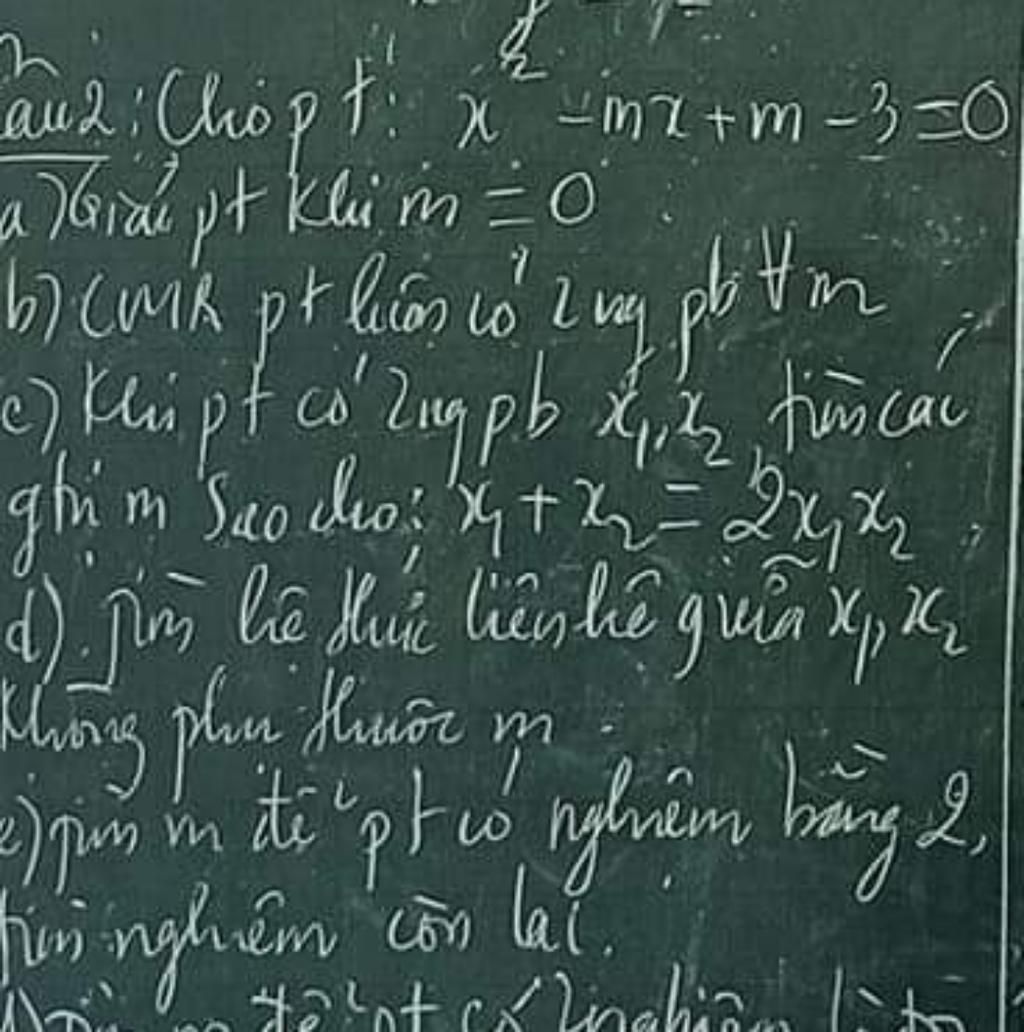 Câu 2: Cho pt: x² - mx + m - 3 = 0
a) Giải pt khi m = 0
b) CMR pt luôn có 2 ng pb ∀m
c) Khi pt có 2 ng pb x₁, x₂ tìm các
gtri m sao cho: x₁ + x₂ = 2x₁x₂
d) Tìm hệ thức liên hệ giữa x₁, x₂
không phụ thuộc m
e) tìm m để pt có nghiệm bằng 2,
tìm nghiệm còn lại.
để pt có 2 nghiệm